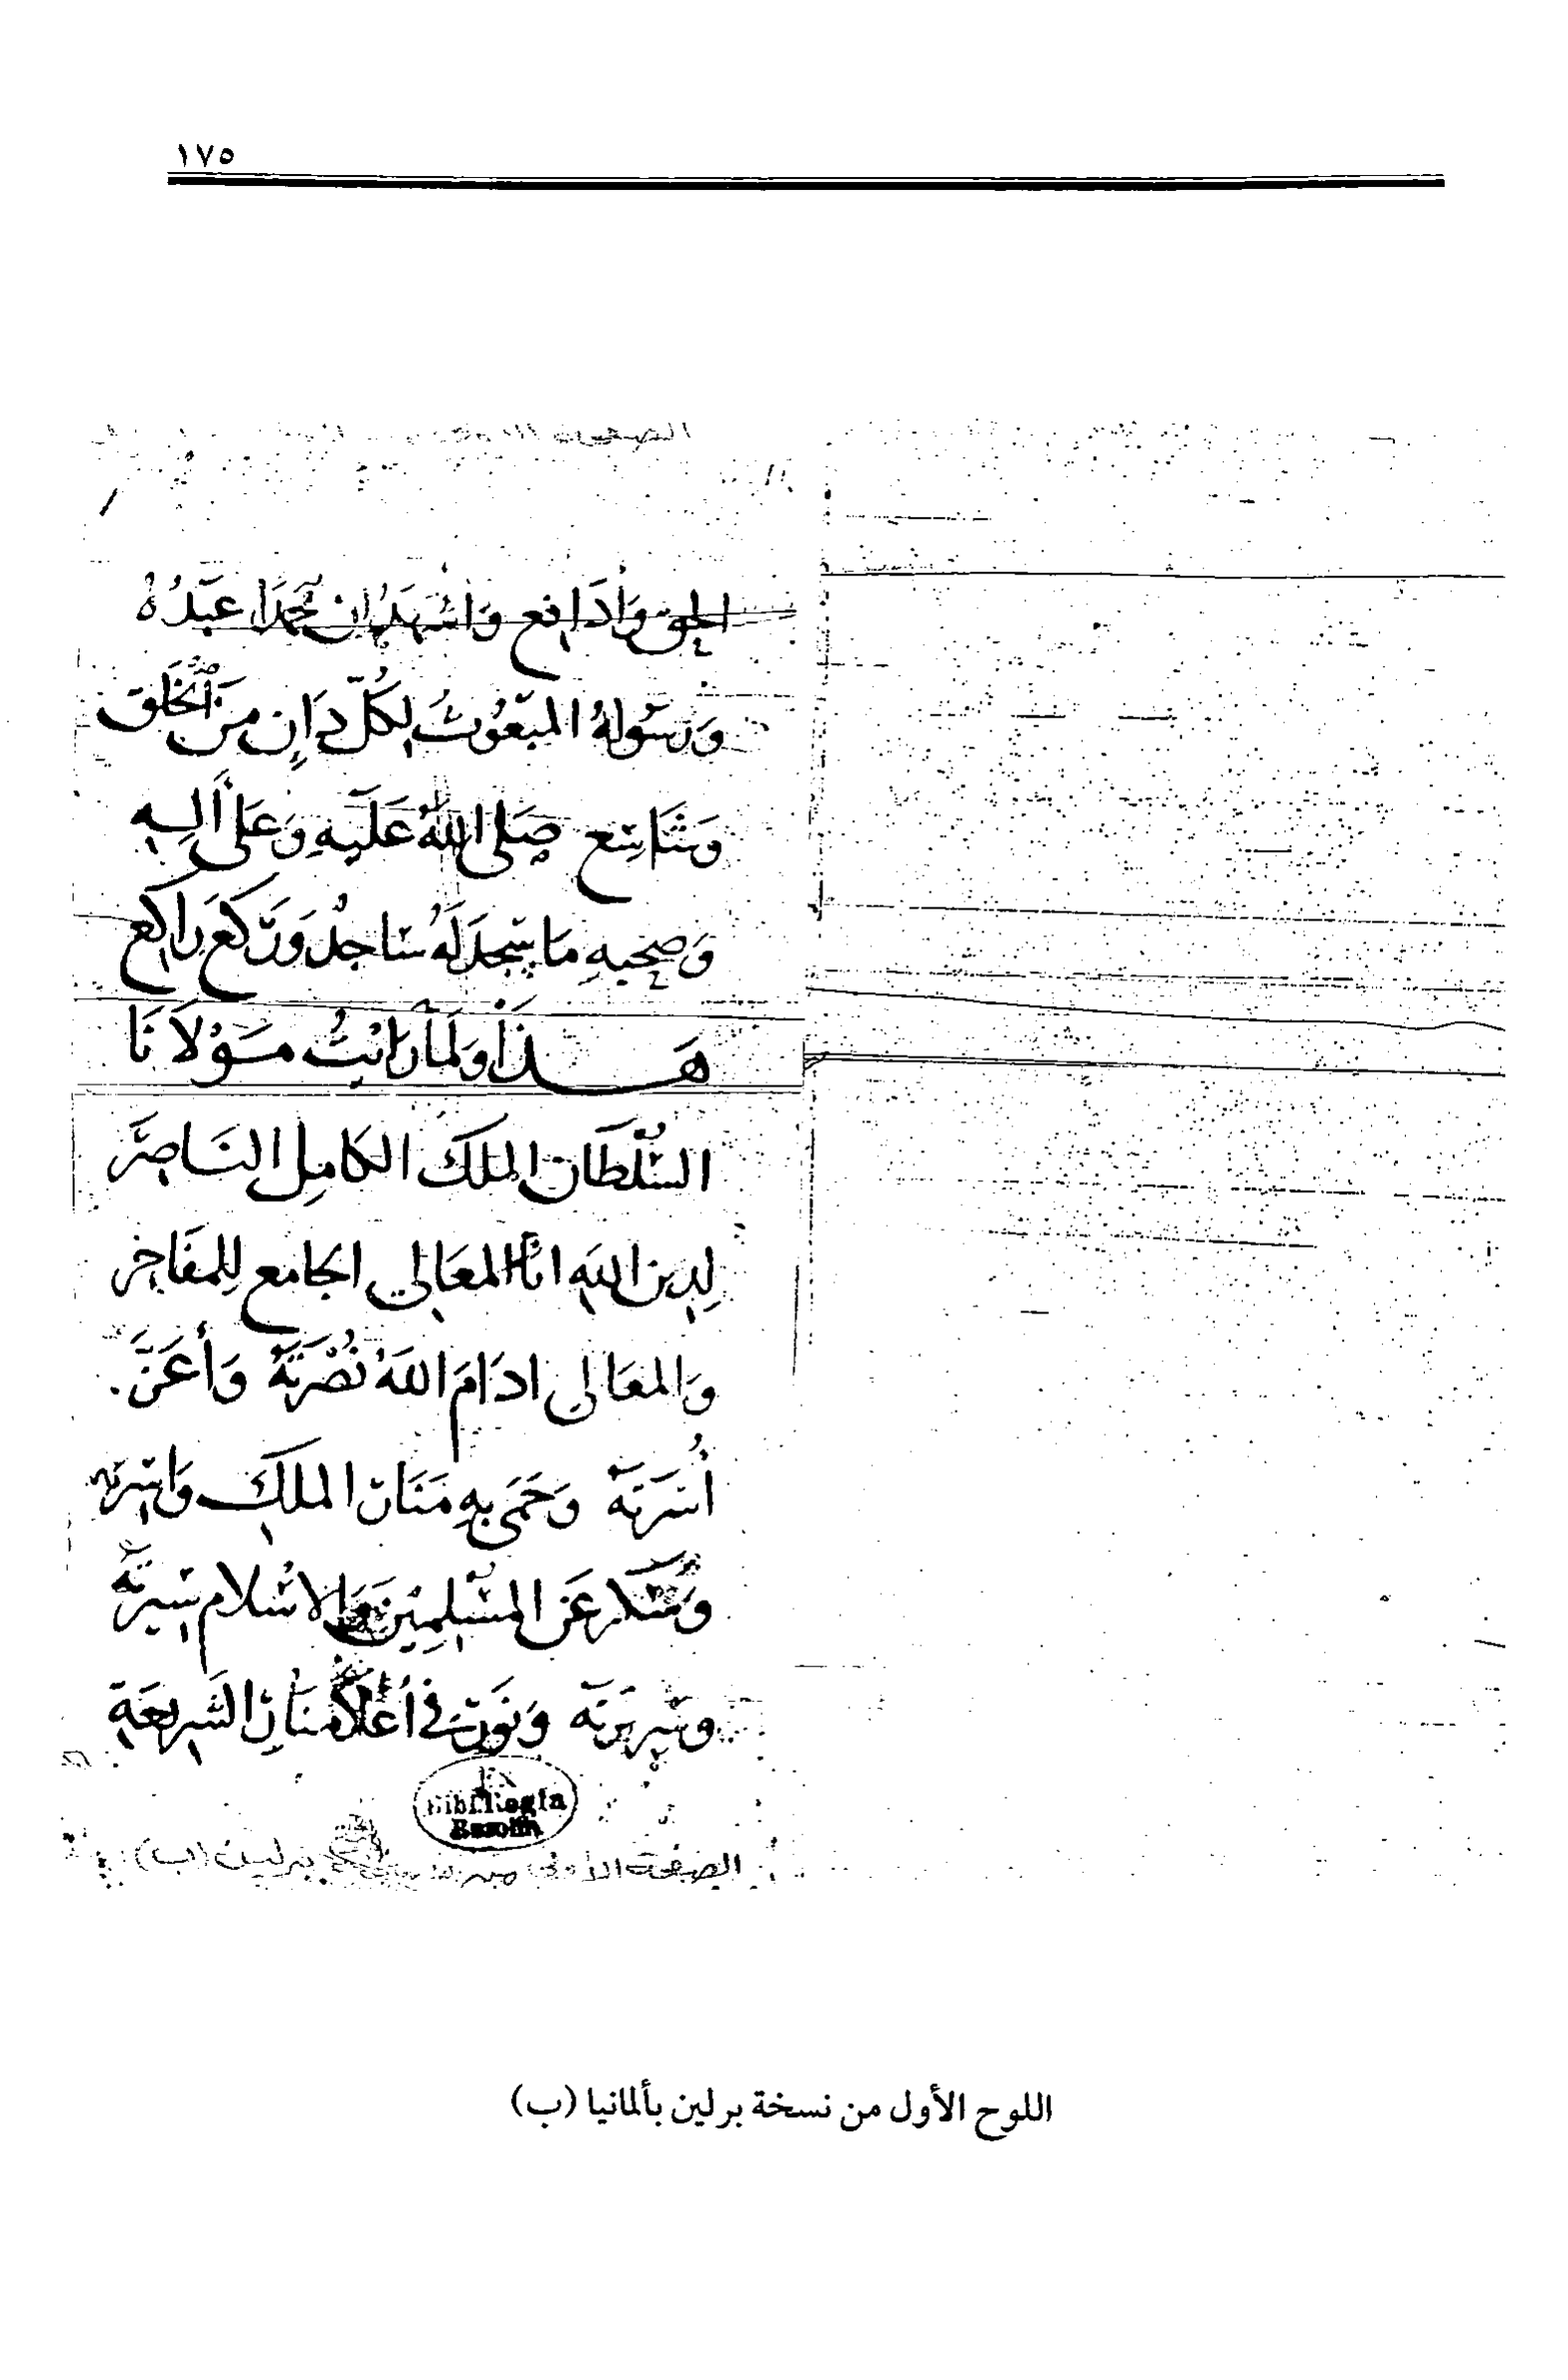 ١٧٥
الحق وأدافع وَاشهَدُ ان محمّدا عَبْدُهُ
وَرَسُولهُ المبعُوثُ لِكُلّ دَانٍ مِنَ الخَلق
وَشَاسِع صَلى اللهُ عَلَيْهِ وَعَلى أَلِه
وَصَحبِهِ مَا سَجَدَ لَهُ سَاجدٌ وَرَكَعَ رَاكع
هَذَا وَلمَا رَايْتُ مَوْلَانَا
السُّلْطَان الملك الكَامِل النَاصِرَ
لِدِين اللهِ ابَا المعَالي الجَامع لِلمفَاخِر
وَالمعَالِي ادَامَ اللهُ نُصْرَتَهُ وَأَعَزَّ
أُسْرَتَهُ وَحَمَى بِهِ مَنَارَ الملكِ
وَشَكَرَ عَن المسْلِمِيْنَ وَالاسْلَام سِيرتَهُ
وَسَرِيرَتَهُ وَنَوَّرَ في أَعْلَا مَنَارِ الشَرِيعَةِ
Bibl. Regia
Berolin.
الصفحة الأولى من برلين (ب)
اللوح الأول من نسخة برلين بألمانيا (ب)